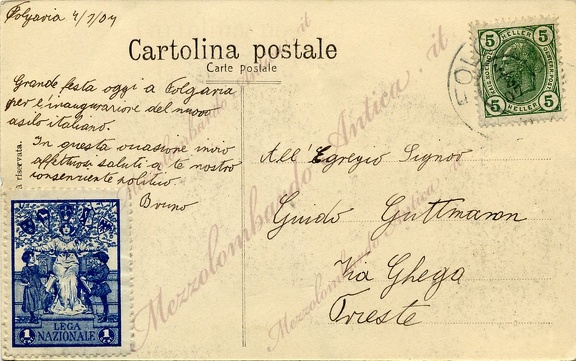 Folgaria 4/7/07
Cartolina postale
Carte postale
Grande festa oggi a Folgaria
per l'inaugurazione del nuovo
asilo italiano.
In questa occasione invio
affettuosi saluti a te nostro
consenziente politico.
Bruno
a riservata.
All'Egregio Signor
Guido Guttmann
Via Ghega
Trieste
5 5
HELLER
5 HELLER 5
FOL
1 LEGA NAZIONALE 1
Mezzolombardo Antica .it
Mezzolombardo Antica .it